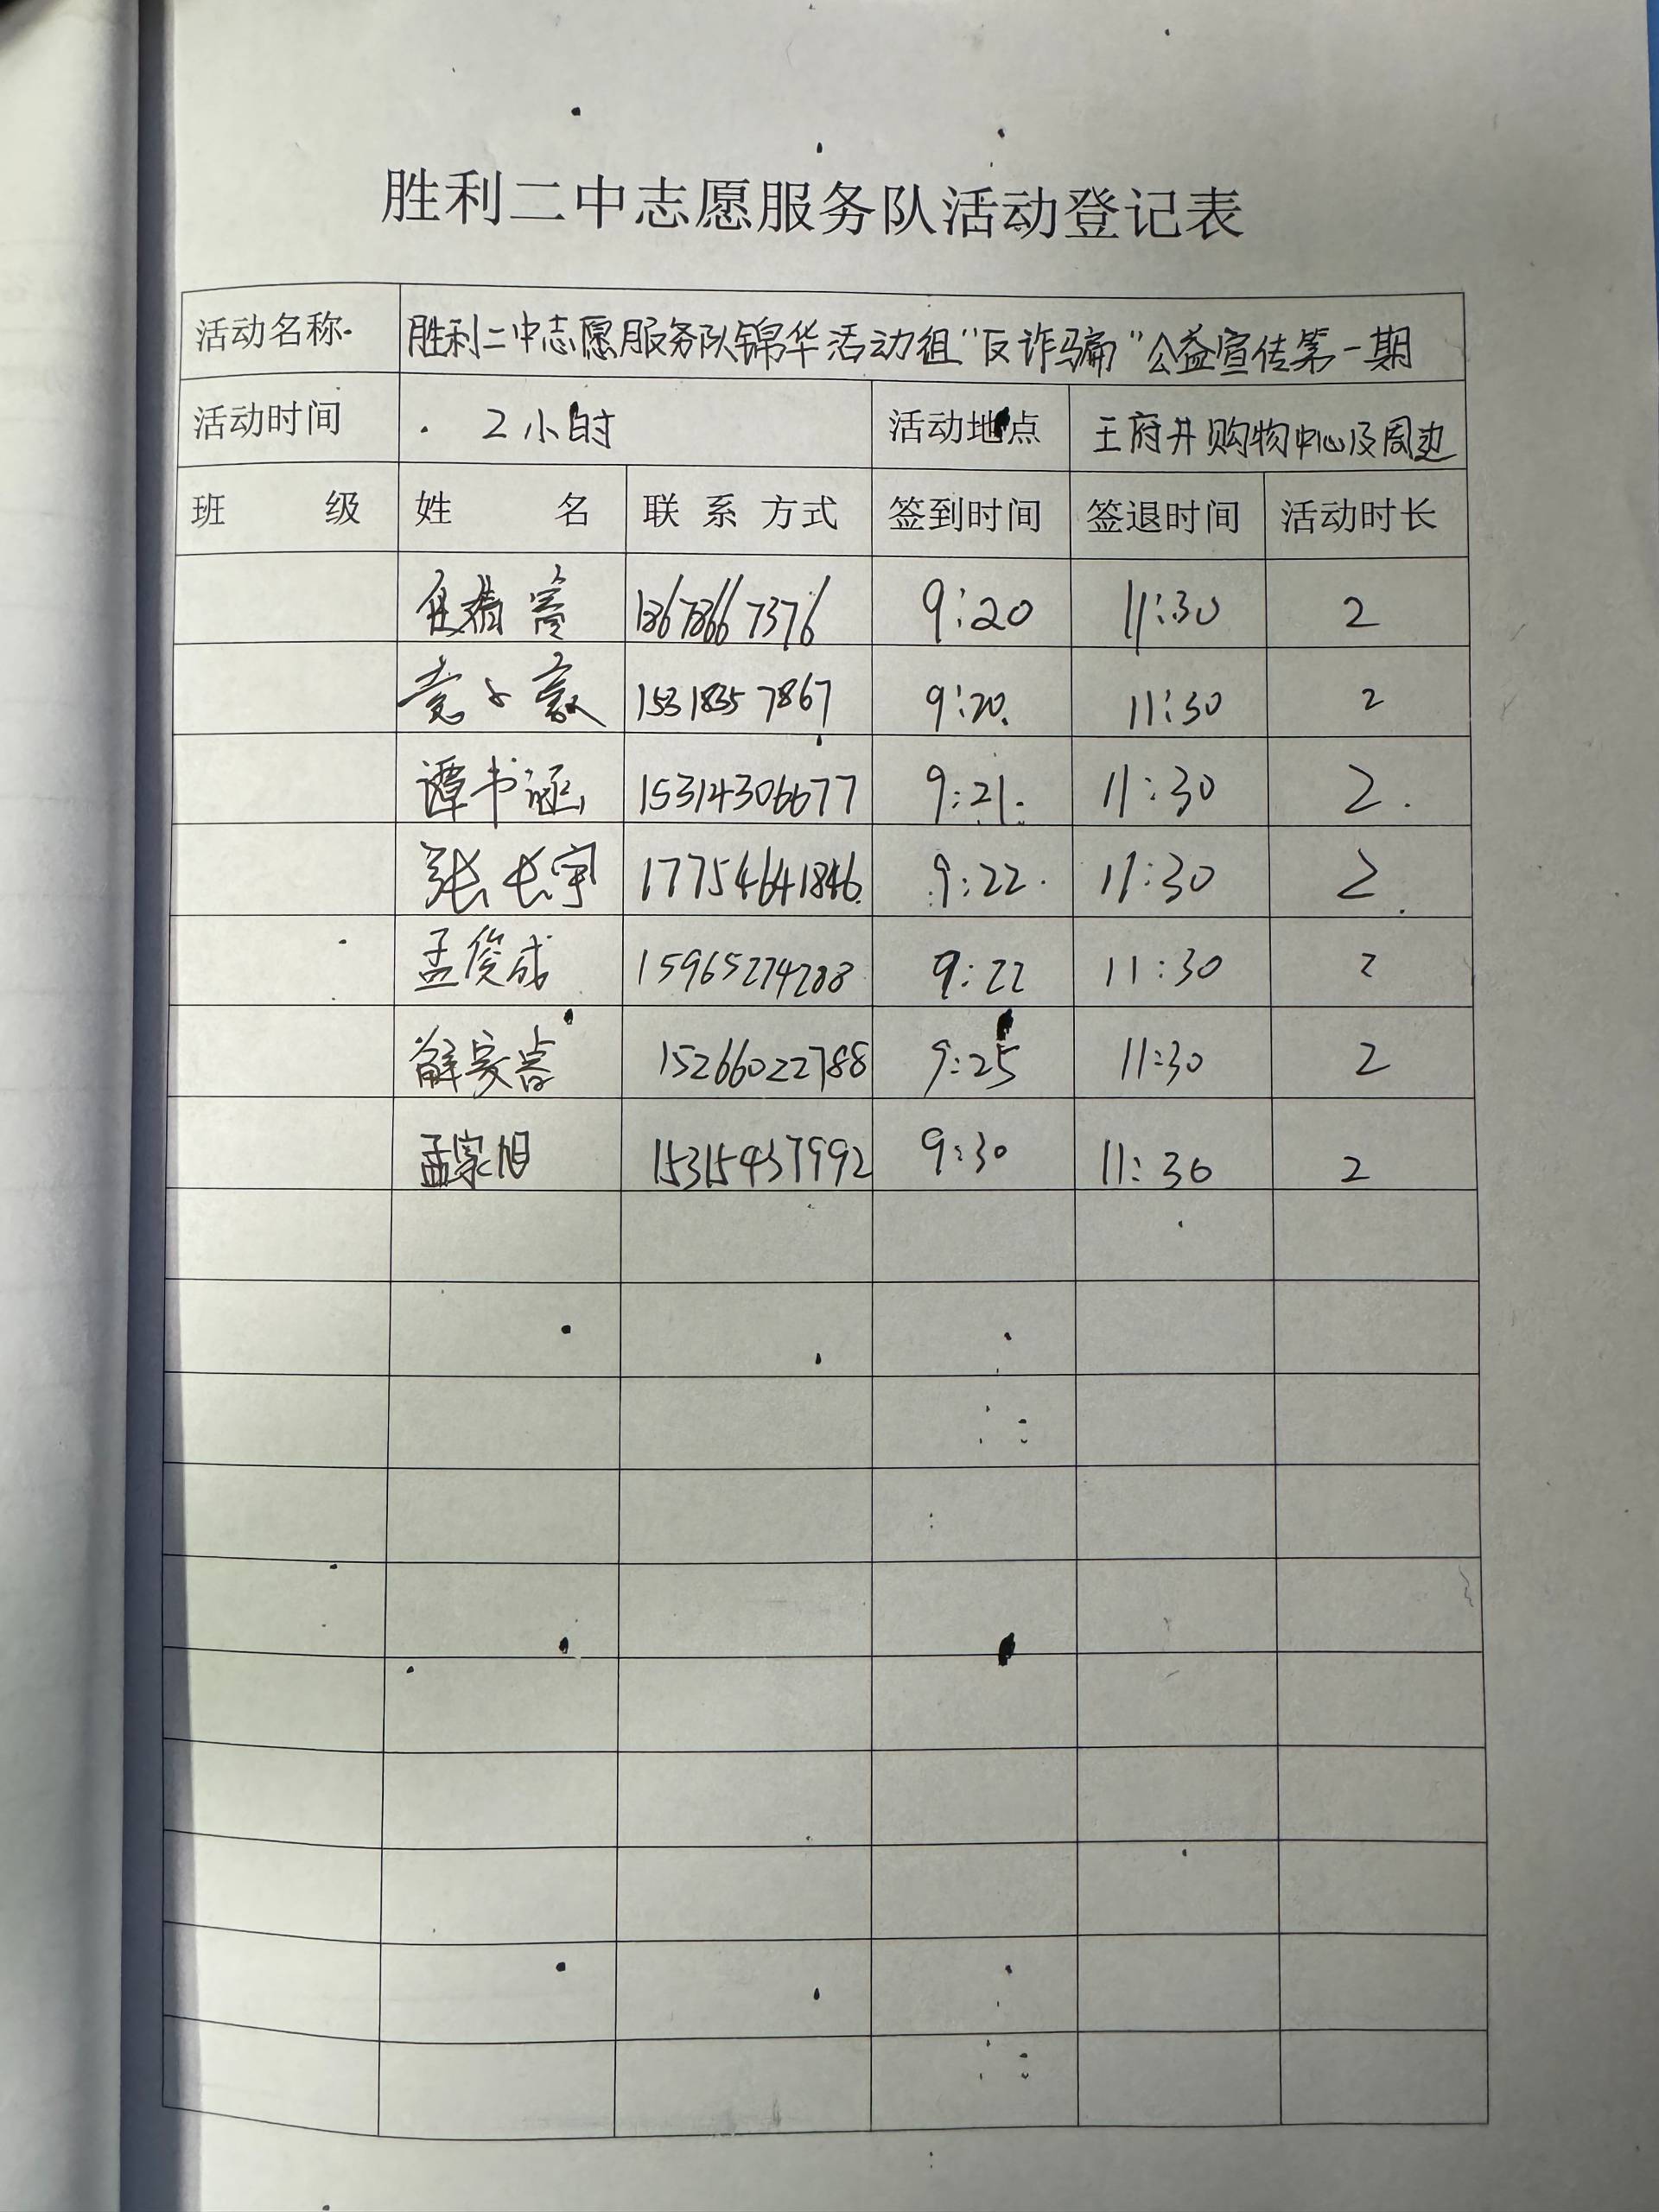 胜利二中志愿服务队活动登记表
活动名称 胜利二中志愿服务队锦华活动组“反诈骗”公益宣传第一期
活动时间 2小时 活动地点 王府井购物中心及周边
班 级 姓 名 联 系 方式 签到时间 签退时间 活动时长
18678667376 9:20 11:30 2
15318357867 9:20. 11:30 2
谭书涵 15314306677 9:21. 11:30 2.
张长宇 17754641846. 9:22. 11:30 2.
孟俊成 9:22 11:30 2
解 15266022788 9:25 11:30 2
孟家旭 15315437992 9:30 11:30 2